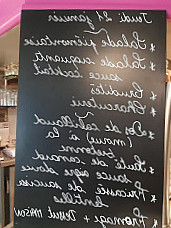 Jeudi 21 janvier
* Salade piémontaise
* Salade arguenti
sauce cocktail
* Crudités
* Charcuterie
* Dos de cabillaud
(morue) à la
bretonne
* Sauté de canard
sauce aigre douce
* Fricassée de saucisse
lentilles
* Fromage + Dessert MAISON